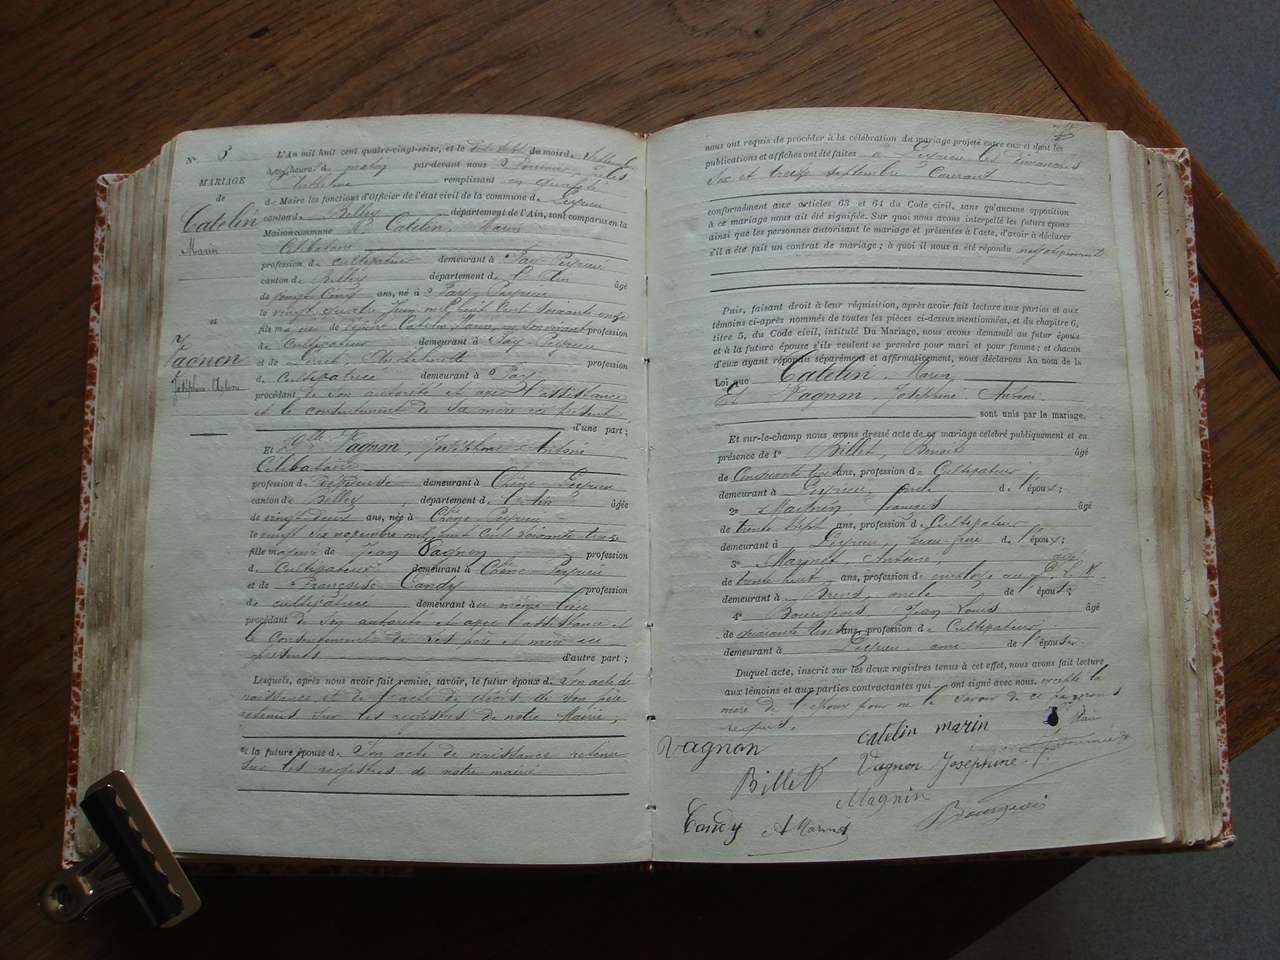 N° 3
MARIAGE
de
Catelin
Marin
et
Vagnon
Joséphine Antoine
L'An mil huit cent quatre-vingt-seize, et le dix-sept du mois de Septembre
à heure de par devant nous
remplissant en qualité
de Maire les fonctions d'Officier de l'état civil de la commune de Peyrieu
canton de Belley département de l'Ain, sont comparus en la
Maison commune Catelin, Marin
Célibataire
profession de cultivateur demeurant à Peyrieu
canton de Belley département de l'Ain âgé
de vingt cinq ans, né à Peyrieu
le vingt quatre Juin mil huit cent soixante onze
fils majeur de Catelin, en son vivant profession
de Cultivateur demeurant à Peyrieu
et de profession
de Cultivatrice demeurant à
procédant de son autorité et avec l'assistance
et le consentement de sa mère ici présente
d'une part ;
Et Dlle Vagnon, Joséphine Antoine
Célibataire
profession de demeurant à Peyrieu
canton de Belley département de l'Ain âgée
de vingt deux ans, née à Peyrieu
le vingt six novembre mil huit cent soixante treize
fille majeure de Jean Vagnon profession
de Cultivateur demeurant à Peyrieu
et de Françoise Candy profession
de cultivatrice demeurant au même lieu
procédant de son autorité et avec l'assistance et
le consentement de ses père et mère ici
présents d'autre part ;
Lesquels, après nous avoir fait remise, savoir, le futur époux de son acte de
naissance et de l'acte de décès de son père
retenus sur les registres de notre Mairie,
et la future épouse de Son acte de naissance retenu
sur les registres de notre mairie
nous ont requis de procéder à la célébration du mariage projeté entre eux et dont les
publications et affiches ont été faites à Peyrieu les dimanches
Six et treize septembre Courant
conformément aux articles 63 et 64 du Code civil, sans qu'aucune opposition
à ce mariage nous ait été signifiée. Sur quoi nous avons interpellé les futurs époux
ainsi que les personnes autorisant le mariage et présentes à l'acte, d'avoir à déclarer
s'il a été fait un contrat de mariage ; à quoi il nous a été répondu négativement
Puis, faisant droit à leur réquisition, après avoir fait lecture aux parties et aux
témoins ci-après nommés de toutes les pièces ci-dessus mentionnées, et du chapitre 6,
titre 5, du Code civil, intitulé Du Mariage, nous avons demandé au futur époux
et à la future épouse s'ils veulent se prendre pour mari et pour femme ; et chacun
d'eux ayant répondu séparément et affirmativement, nous déclarons Au nom de la
Loi que Catelin Marin
Et Vagnon, Joséphine Antoine
sont unis par le mariage.
Et sur-le-champ nous avons dressé acte de ce mariage célébré publiquement et en
présence de 1° Billet, Benoit âgé
de Cinquante ans, profession de Cultivateur
demeurant à Peyrieu, oncle de l'époux ;
2° Magnin, François âgé
de trente sept ans, profession de Cultivateur
demeurant à Peyrieu, beau-frère de l'époux ;
3° Antoine, âgé
de trente huit ans, profession de employé au P. L. M.
demeurant à oncle de l'époux ;
4° Bourgeois Jean Louis âgé
de quarante ans, profession de Cultivateur
demeurant à Peyrieu, ami de l'époux.
Duquel acte, inscrit sur les deux registres tenus à cet effet, nous avons fait lecture
aux témoins et aux parties contractantes qui ont signé avec nous, excepté la
mère de l'époux pour ne le savoir de ce
requis.
Vagnon
catelin marin
Billet
Vagnon Joséphine
Magnin
Candy
Bourgeois